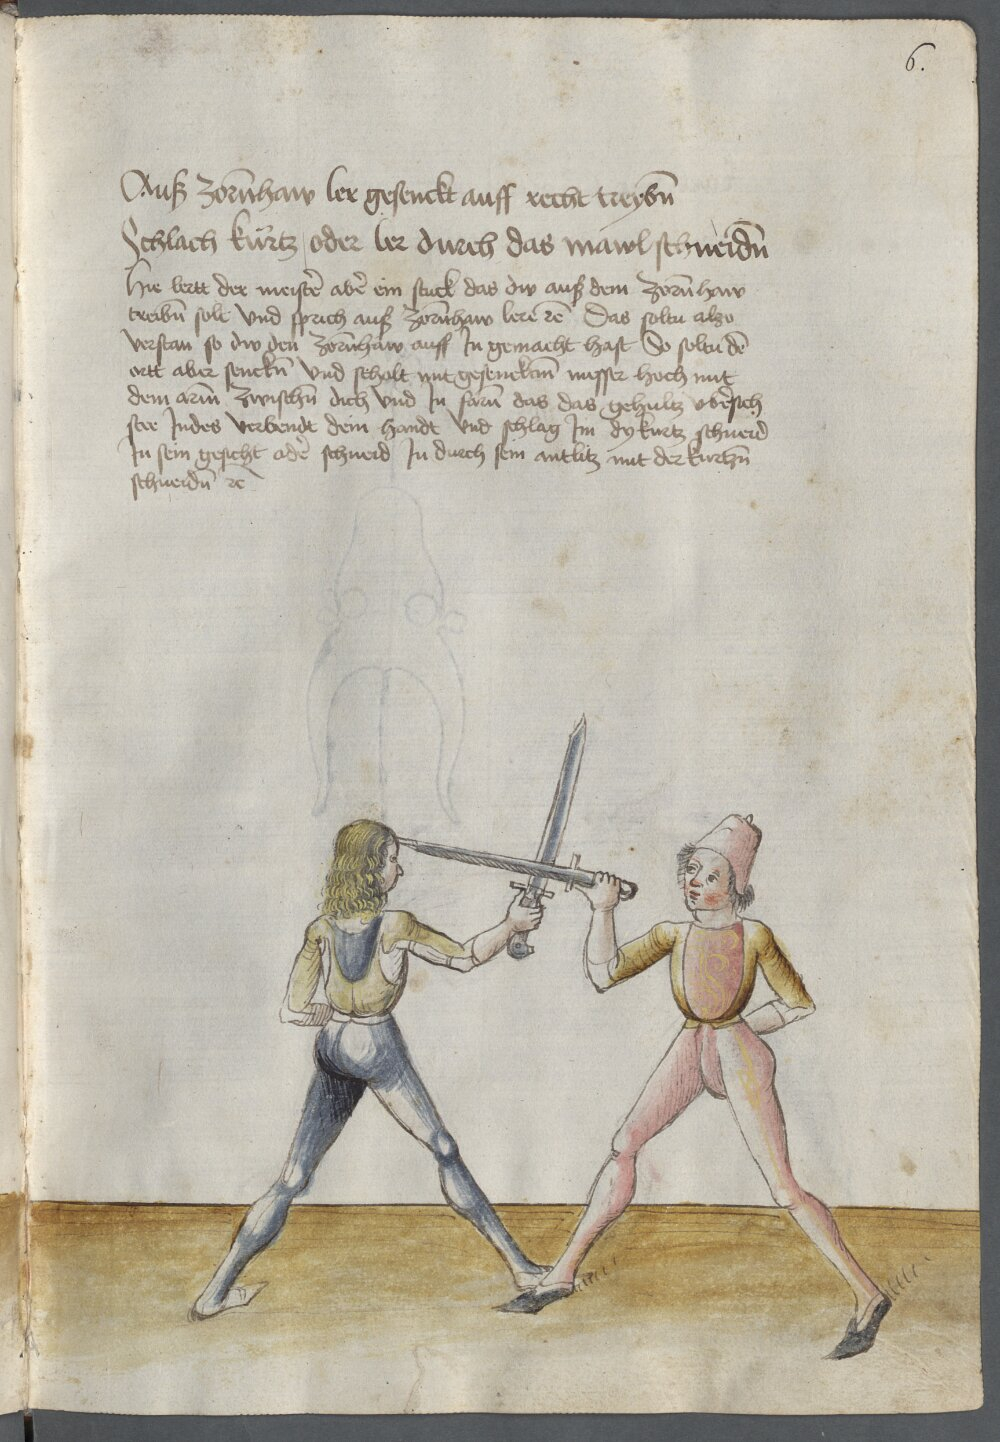 6.
Auß zorñhaw ler gesenckt auff recht treybñ
Schlach kürtz / oder ler durch das mawl schneidñ
Hie lertt der meistẽ abẽ ein stuck das dw auß dem zorñhaw
treibñ solt vnd sprich auß zorñhaw lere rc̃ Das soltu also
verstan so dw den zorñhaw auff In gemacht hast So soltu dẽ
ortt aber senckñ vnd schalt mit gesencktm̃ messer hoch mit
dem arm̃ zwischñ dich vnd In farñ das das gehultz vbẽsich
stee Indes verbendt dein handt vnd schlag Im dy kurtz schneid
In sein gesicht odẽ schneid In durch sein antlitz mit der kurtzñ
schneidñ rc̃